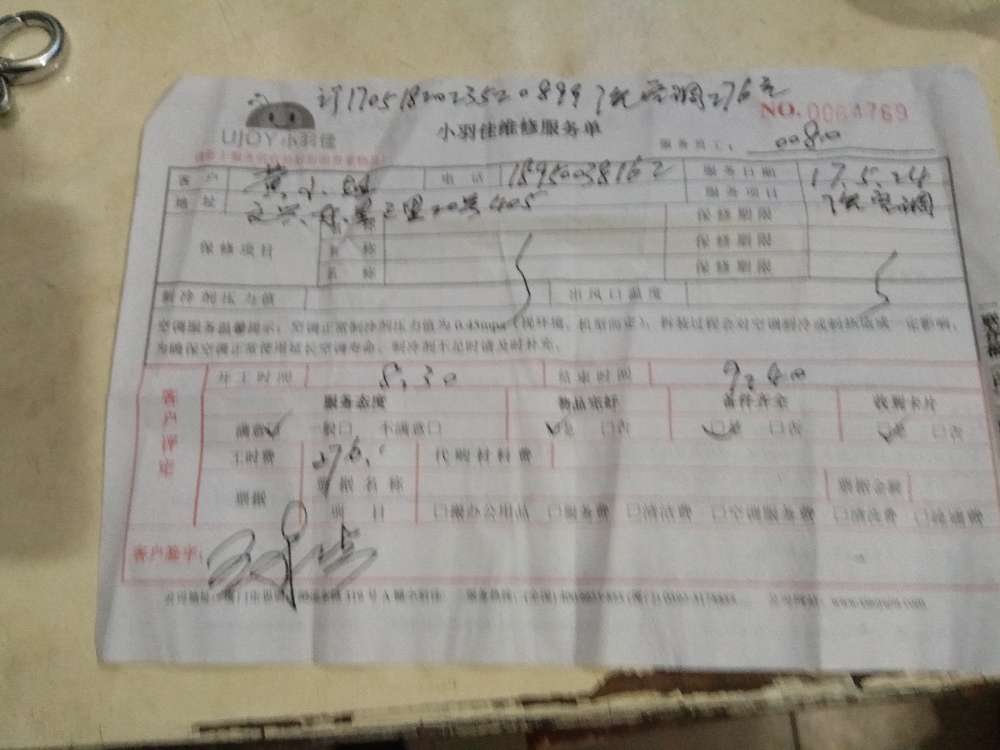 订1705182023520899 洗空调276元
UJOY小羽佳
NO.0064769
小羽佳维修服务单
服务员工: 0080
客户 黄小 电话 18950038162 服务日期 17.5.24
地址 20号405 服务项目 洗空调
保修项目 名称 保修期限
名称 保修期限
名称 保修期限
制冷剂压力值 出风口温度
空调服务温馨提示:空调正常制冷剂压力值为0.45mpa(视环境、机型而定),拆装过程会对空调制冷或制热造成一定影响,
为确保空调正常使用延长空调寿命,制冷剂不足时请及时补充。
客户评定
开工时间 8.30 结束时间 9.40
服务态度 物品完好 备件齐全 收购卡片
满意 一般口 不满意口 是 口否 口是 口否 口是 口否
工时费 276. 代购材料费
票据 票据名称 票据金额
项目 口搬办公用品 口服务费 口清洁费 口空调服务费 口清洗费 口疏通费
客户签字: